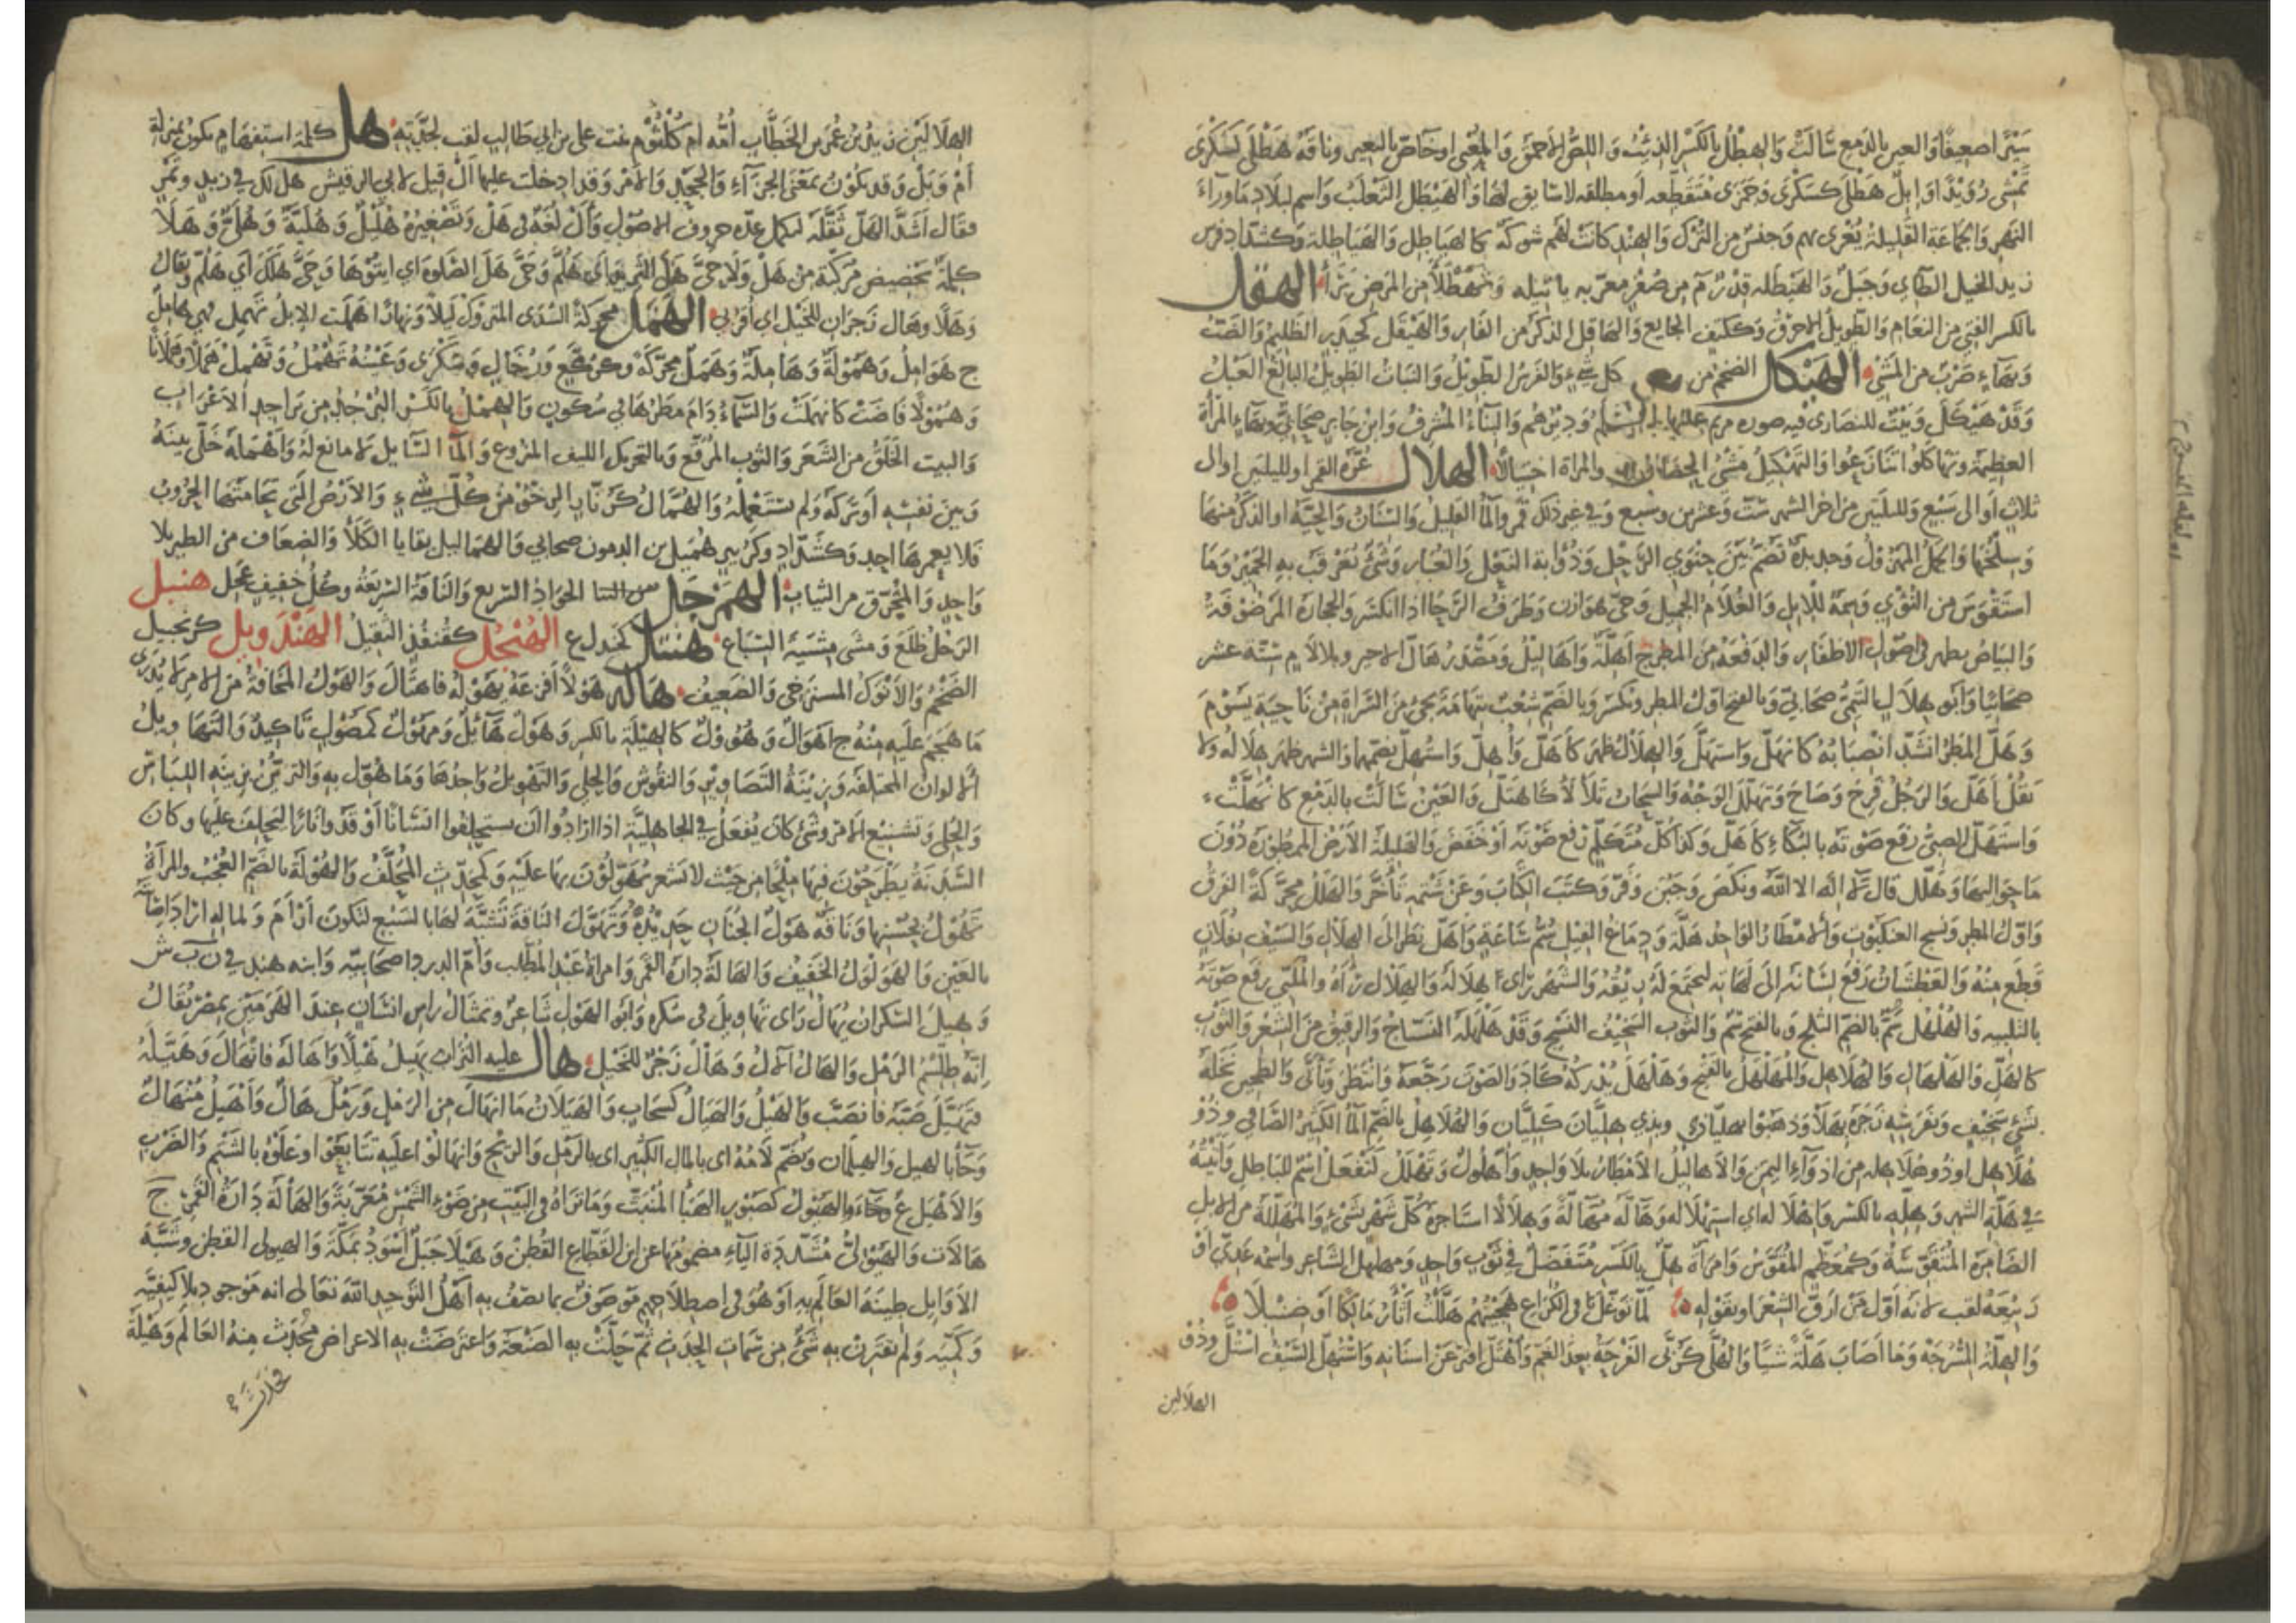 سَيْرًا ضعيفًا وَالعين بالدمع سَالَتْ وَالهِطْلُ بالكَسْرِ الذِئْبُ وَاللِصُّ الأَحمَقُ وَالمُعْيى اوخَاصّ بالبعير وناقَةٌ هَطْلَى كَسَكْرَى
تَمْشى رُوَيْدًا وَإِبِلٌ هَطْلَى كسَكْرَى وَجَمَزَى مُتَقَطِّعه أومطلقه لاسَايق لهَا وَالهَيْطَل الثعلَبُ وَاسم لبلاد مَاورآءَ
النهر وَالجمَاعَة القليلة يُغزَى بهم وَجنسٌ من التُرك وَالهِند كانَتْ لهُم شوكَةٌ كالهيَاطِل وَالهيَاطِلة وَكشدّادفرس
زيد الخيل الطآى وَجَبَلٌ وَالهَيْطَله قِدْرٌ م من صُفْرٍ معرّبه باتيله وتَهَطْلَأَ من المَرَض بَرَأَ الهقل
بالكسر الفتىّ من النعَام وَالطويلُ الاخرقُ وَككَتِف الجايع وَالهَاقِل الذكَرُ من الفَار وَالهَيْقَل كحيدرٍ الظليمُ وَالضَبّ
وَبهَآءٍ ضَرْبٌ من المَشْى الهَيْكل الضخم من كل شىءٍ وَالفَرسُ الطَويلُ وَالنبَاتُ الطويل البالغُ العَبْلُ
وَقَدْ هَيْكَلَ وَبَيْتٌ للنصَارى فيه صوره مريم عليها السلم وَدِيْرُهُم وَالبِنَآءُ المُشرِفُ وَابن جَابر صَحَابيّ وبهَآءٍ المرأة
العظيمَة وتهَاكَلُوا تنَازَعُوا وَالتَهيْكِيلُ مَشْىُ الحِصَانِ والمرأة اختيَالًا الهلال غُرّه القمر اولليلتين اوالى
ثلاثٍ اَوالى سَبْعٍ وَلليلَتَينِ من اخر الشهر سِتٍّ وَعشرين وسَبع وَفي غيرذلك قمَر وَالمآُ القليلُ وَالسِنَانُ وَالحَيّةُ اوالذكَر مِنهَا
وَسِلْخُهَا وَالجَمَلُ المهزُولُ وَحديدَةٌ تَضُمّ بَيْنَ حِنْوَىِ الرَّحْل وَذُؤَابة النَعْلِ وَالغُبار وَشَىءٌ تُعَرْقَبُ بهِ الحَمِيْرُ وَمَا
استَقوَسَ من النُؤْىِ وَسِمَةٌ للابِل وَالغُلَامُ الجميل وَحىّ هَوَازِن وَطَرَفُ الرَحَااذا انكسَر وَالحِجَارَة المَرضُوفَةُ
وَالبيَاضُ يظهر فى اصُوْل الاظفَار وَالدفعَةُ مِن المطر ج أَهِلّةٌ وَأهَاليْلُ وَمَصْدَرُ هَالّ الاجير وبلالام سِتّة عشر
صَحَابيًّا وَأَبُو هِلَالٍ التَيمىّ صَحَابىّ وَبالفتح اوّل المطر وتكسَر وَبالضّم شِعْبٌ بتهَامَة يَجئُ من السَرَاة من نَاحِيَة يَسُوْمَ
وَهَلّ المَطَرُاشتدَّ انصبَابُهُ كانهَلّ وَاستَهَلَّ وَالهِلَالُ ظهَر كأَهَلّ وَأُهِلّ وَاستُهِلّ بضَمّهاوالشهر ظَهَر هِلَالُه وَلا
تَقُلْ أَهَلّ وَالرَجُلُ فَرِحَ وَصَاحَ وَتهَلّلَ الوَجْهُ وَالسَحَابُ تَلَأْلَأَ كاهْتَلّ وَالعَيْنُ سَالَتْ بالدَمْعِ كانهَلَّتْ
وَاستَهَلّ الصبىّ رَفَع صَوْتَه بالبُكَآءِ كأَهَلّ وَكَذا كُلّ مُتَكَلِّمٍ رَفع صَوتَه أَوْخَفَضَ وَالهَلِيلَةُ الأَرْضُ الممطُوْرَةُ دُوْنَ
مَاحَوَاليهَا وَهَلّل قَالَ لَا إلَه الا اللّٰه ونكَصَ وَجَبُن وَفَرّ وَكتَبَ الكِتَابَ وَعَنْ شَتمِهِ تَأَخَّرَ وَالهَلَلُ محرَّكَةً الفَرَقُ
وَاوّلُ المطر وَنسج العنكبُوتِ وَالأَمْطَارُ الوَاحِدُ هَلَّة وَدِمَاغ الفِيْل سُمُّ سَاعَةٍ وَأَهَلّ نَظَر الى الهلَالِ وَالسَيف بفُلَانٍ
قَطَعَ مِنْهُ وَالعَطْشَانُ رَفعَ لِسَانَه إلى لهَاتِه لِيجتمِعَ لَه رِيْقُهُ وَالشَهرَ رَاى هِلَالَهُ وَالهِلَال رَآهُ والمُلَبّى رفعَ صَوتَهُ
بالتلبيه وَالهُلْهُل بالضّم الثلج وَبالفتح سَمٌّ وَالثوب السَخِيْف النَسْج وَقَدْ هَلْهَلَهُ النسّاجُ وَالرقيقُ مِنَ الشَعْر وَالثَوْب
كالهَلّ وَالهَلْهَال وَالهُلَاهِل وَالمُهَلْهَل بالفَتح وَهَلْهَلَ يُدْركُهُ كَادَ وَالصَوْتَ رَجَّعَهُ وَانتَظَرَ وَتَأنّى وَالطحِينَ نَخَلَهُ
بشَىءٍ سَخِيْفٍ وَبفَرسِه زَجَرَه بهَلَا وَذهَبُوا بهلِيَّانٍ وبذي هِلِيَّانَ كَبِلِيَّان وَالهُلَاهِلُ بالضّم المَآُ الكَثيْرُ الصَافي وذُوْ
هُلَاهِلٍ اوذُوهُلَاهِله من اذوَآءِ اليَمن وَالأَهاليْلُ الأَمْطَارُ بلَا وَاحِدٍ وَأُهْلُولٌ وَتَهْلَلُ كَتَفْعَلُ اسْمٌ للبَاطِل وَأتيتُهُ
في هَلَّةِ الشهرِ وَهِلّهِ بالكسر وَإِهْلَاله اى اسْتِهْلَالِه وَهَالّه مُهَالّةً وَهِلَالًا استَأجرَهُ كُلّ شَهْرٍ بشَىءٍ وَالمُهَلّلَةُ من الابِل
الضَامِرَةُ المُتقوّسَةُ وَكمُعَظّمٍ المُقَوَّسُ وَامرَأةٌ هِلّ بالكَسْرِ مُتَفضّلَةٌ في ثَوْبٍ وَاحدٍ وَمُهلهِلٌ الشَاعِر وَاسمُه عَدىّ اوْ
رَبِيعَةُ لقب لانّه أَوّلُ مَنْ أَرَقَّ الشِعْرَ اوبقَوْلِهِ لَمَّا تَوَغَّلَ في الكُرَاعِ هَجِيْنُهُم هَلْهَلْتُ أَثْأَرُ مَالكًا أَوْ صِنْبِلَا
وَالهِلّةُ المُسْرَجَةُ وَمَا اصَابَ هَلّةً شيئًا وَالهُلَّى كَرُبّى الفَرَحَةُ بعدَ الغَمّ وَاهْتَلَّ افتَرّ عَن اسنانِهِ وَاسْتُهِلَّ السَيْفُ اسْتُلَّ وَذُوْ
الهلالين
الهلَالَيْنِ زيدُ بنُ عُمَر بن الخَطَّابِ أُمُّه ام كُلْثُومٍ بنت على بن ابى طَالبٍ لقب لجَدَّيْهِ هل كلمة استفهَامٍ تكون بمنزلةِ
أَمْ وَبَلْ وَقد تكُوْن بمَعْنَى الجزآءِ وَالجَحْدِ وَالأَمْر وَقداُدخِلت عليهااَلْ قيل لابى الدقيش هل لك في زُبدٍ وتمْرٍ
فقَال أَشَدّ الهَلّ ثَقَّلَه ليكمل عِدّة حروف الاصُوْلِ وَأَلْ لُغَةٌ فى هَلْ وَتَصْغِيرُهُ هُلَيْلٌ وَهُلَيّةٌ وَهُلَىٌّ وَهَلَّا
كلمَةُ تحضِيضٍ مُركّبَة مِن هَلْ وَلا وَحَىَّ هَلَ الثَرِيدَ اى هَلُمَّ وَحَىَّ هَلَ الصَلوةِ اى ايتُوْهَا وَحَىَّ هَلَكَ اى هَلُمّ وَتعَالَ
وَهَلَا وهال زَجْرَانِ للخَيْل اى اقرُبى الهَمَل محركَةً السُدَى المتروكُ لَيلًا وَنهارًا هَمَلَت الإبِلُ تَهمِل فهى هَامِلٌ
ج هَوَامِلُ وَهَمُوْلَةٌ وَهَامِلَةٌ وَهَمَلٌ محرَّكَةً وَكرُكَّع وَرُخَالٍ وَسَكْرَى وَعَيْنُهُ تَهمُلُ وَتَهْمِلُ هَمْلًا وهَمَلَانًا
وَهُمُوْلًا فَاضَتْ كانهمَلَتْ وَالسَّمَآءُ دَامَ مَطرُهَا فى سُكونٍ وَالهِمْلُ بالكَسْرِ البُرْجُدُ من بَرَاجِدِ الاعرَاب
وَالبيت الخَلَقُ من الشَعَر وَالثوبُ المُرَقَّعُ وَبالتحرِيك الليف المنزوع وَالمآُ السَّايلُ لَا مانعَ لهُ وَأَهْمَلَهُ خَلّى بينَهُ
وَبينَ نَفسِه أَوْتركَهُ وَلم يَستعملْهُ وَالهُمَّالُ كَزُنّارٍ الرِخْوُ مِنْ كُلّ شىءٍ وَالأَرْضُ التَى تحَامَتهَا الحُرُوبُ
فَلا يعمرهَا احد وَكشدَّادٍ وَكزُبيرٍ هُمَيْلُ بن الدمون صحابى وَالهمَاليلُ بقَايَا الكَلَأِ وَالضِعَاف من الطير بلا
وَاحِدٍ وَالمُخَرَّقُ من الثيَابِ الهَمَرْجَل من الجَوَادُ السَريعُ وَالنَاقَةُ السَريعَةُ وَكُلُّ خفيفٍ عَجِل هنبل
الرَجُلُ ظَلَعَ وَمَشَى مِشْيَةَ الضِبَاعِ هنتل كجندل ع الهُنْجُل كقنفذٍ الثقيلُ الهَنْدَويل كزنجبيل
الضَخْمُ وَالأَنْوَكُ المستَرخى وَالضَعِيف هَاله هَوْلًا أَفزَعَهُ كهَوَّلَهُ فاهتَالَ وَالهَوْلُ المَخَافَةُ مِنَ الامرِ لَا يُدْرَى
مَا هَجَمَ عَلَيه مِنْهُ ج أَهْوَالٌ وَهُؤُوْلٌ كالهِيْلَةِ بالكسرِ وَهَوْلٌ هَآئِلٌ وَمَهُوْلٌ كمَصُوْنٍ تَاكِيدٌ وَالتَهَاويلُ
الألوان المختلفَة وَزِيْنَةُ التَصَاوِيْر وَالنقُوْش وَالحَلْى وَالتَهْوِيْلُ وَاحِدُهَا وَمَا هُوِّل بهِ وَالتَزيُّنُ بزينةِ اللِبَاسِ
وَالحَلْىِ وَتشنِيْعُ الأَمْرِ وشَىءٌ كانَ يُفعَلُ فى الجَاهليَّة اذا ارَادُواان يستَحلِفُوا انسَانًا أَوْقَدُوانَارًا ليَحلِفَ عليهَا وكانَ
السَدَنَةُ يَطرَحُوْنَ فيهَا مِلْحًا من حَيْث لا يَشعُر يُهَوِّلُوْنَ بهَا عليهِ وَكمُحَدّثٍ المُحَلِّفُ وَالهُوْلَةُ بالضّمّ العَجَبُ والمرأَةُ
تَهُوْلُ بحُسْنِهَا وَنَاقَةٌ هُوْلُ الجَنَانِ حَديدَةٌ وَتهَوَّلَ الناقَةَ تَشَبَّهَ لهَا بالسَبُعِ لتكونَ أَرْأَمَ وَلمالِهِ ارَادَ إِصَابَتَهُ
بالعَيْنِ وَالهَوَلوَلُ الخَفِيْفُ وَالهَالَةُ دَارَةُ القَمَرِ وَامرَاةُ عَبْدِ المُطّلب وَامّ الدردآءِ صحَابيّة وَابنُه هند في ن ب ش
وَهِيلَ السَكرانُ يُهَالُ رَأى تَهاوِيلَ فى سُكرِهِ وَأَبُو الهَوْل شَاعرٌ وَتمثَالُ رَاسِ انسَانٍ عِندَ الهَرَمَيْنِ بمِصْرَيُقَالُ
إنّهُ طِلَّسْمُ الرَمْلِ وَالهَالُ الآلُ وَهَالْ زَجْرٌ للخَيْلِ هال عليه التُرَابَ يَهِيْلُ هَيْلًا وَأَهَالَهُ فانهَالَ وَهَيَّلَهُ
فتهَيَّلَ صَبّهُ فانصَبّ وَالهَيْلُ وَالهَيَالُ كسحَابٍ وَالهَيَلَانُ مَا انهَالَ مِنَ الرَمْلِ وَرَمْلٌ هَالٌ وَأَهْيَلُ مُنْهَالٌ
وَجَآءَبالهَيلِ وَالهَيلَمَانِ وَتُضمّ لَامُهُ اى بالمَالِ الكَثِيْر اى بالرَمْلِ وَالريْح وَانهَالُوْا عليه تتَابَعُوا وَعَلَوْهُ بالشَتْم وَالضَرْبِ
وَالأَهْيَل ع وَالهَيُولُ كَصَبُورٍ الهَبَآُ المُنْبَثّ وَمَا تَرَاهُ فى البَيْت مِن ضَوْءِ الشَمْسِ مُعَرّبَةٌ وَالهَالَةُ دَارَةُ القَمَرِ ج
هَالَات وَالهَيُوْلى مُشَدَّدَة اليَآءِ مضمُوْمُهَا عن ابن القَطّاع القُطْنُ وَهَيْلَا جَبَلٌ أَسْوَدُ بمَكّةَ وَالهيولى القطنُ وَشَبَّهَ
الأَوَايلُ طِينَةَ العَالَم بهِ أَوْ هُوَ فى اصطِلَاحهِم مَوصُوفٌ بما يصِفُ بهِ أَهْلُ التوحِيدِ اللّٰهَ تعَالى انه مَوجودٌ بلَاكيفيّةٍ
وَكميّةٍ وَلم يقترن بهِ شَىءٌ مِن سِمَاتِ الحَدَثِ ثمّ حَلَّتْ بهِ الصَنعَةُ وَاعتَرضَتْ بهِ الاعرَاض فحَدَثَ مِنهُ العَالم وَهَيْلَةُ